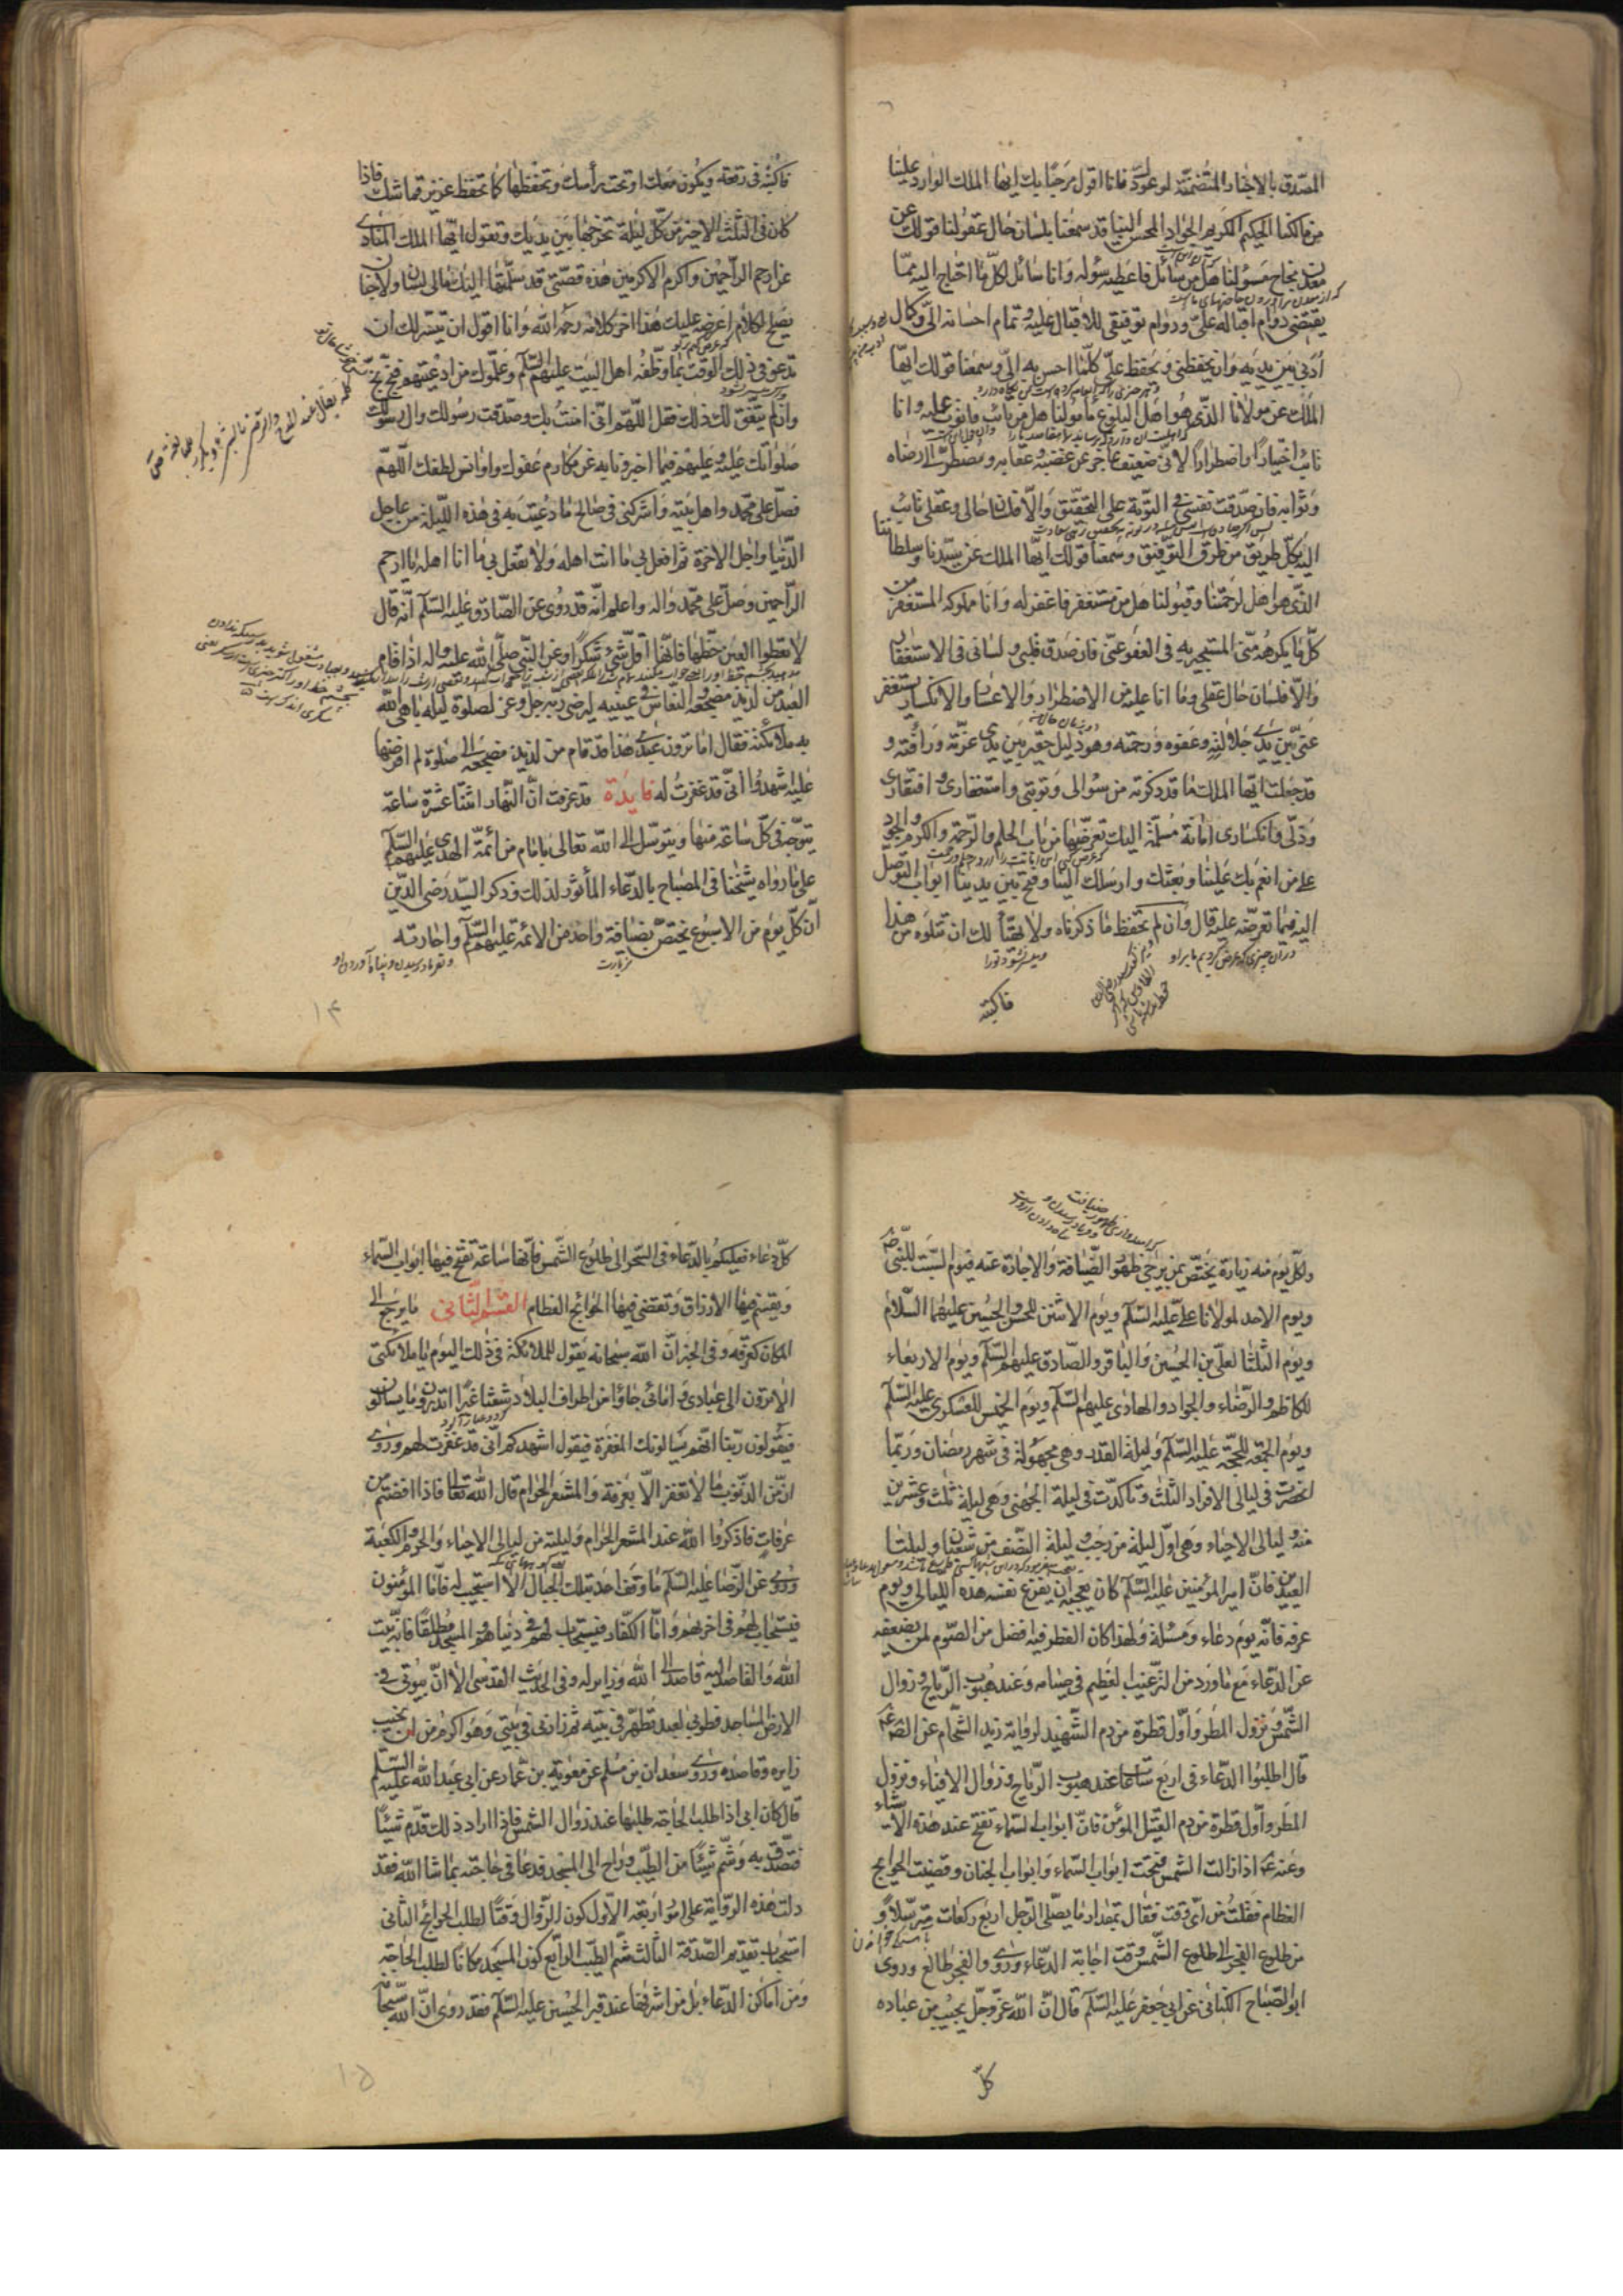 المصدق بالاخبار المتضمنة لوعود فانا اقول مرحبا بك ايها الملك الوارد علينا
من مالكنا الحكيم الكريم الجواد المحسن الينا قد سمعنا بلسان حال عقولنا قولك عن
معدن نجاح مسؤلنا هل من سائل فاعطيه سؤله وانا سائل لكل ما احتاج اليه مما
يقتضى دوام اقباله على ودوام توفيقى للاقبال عليه وتمام احسانه الى وكمال
ادبى بين يديه وان يحفظنى ويحفظ على كلما احسن به الى وسمعنا قولك ايها
الملك عن مولانا الذى هو اهل لبلوغ مامولنا هل من تائب فاتوب عليه وانا
تائب اختيارا واضطرارا لانى ضعيف عاجز عن غضبه وعقابه ومضطر الى رضاه
وثوابه فان صدقت نفسى فى التوبة على التحقيق والا فلسان حالى وعقلى تائب
اليه بكل طريق من طرق التوفيق وسمعنا قولك ايها الملك عن سيدنا وسلطاننا
الذى هو اهل لرحمتنا وقبولنا هل من مستغفر فاغفر له وانا مملوكه المستغفر من
كل ما يكرهه منى المستجير به فى العفو عنى فان صدق قلبى ولسانى فى الاستغفار
والا فلسان حال عقلى وما انا عليه من الاضطرار والاعسار والانكسار يستغفر
عنى بين يدى جلالته وعفوه ورحمته وهو ذليل حقير بين يدى عزته ورافته و
قد جعلت ايها الملك ما قد ذكرته من سؤالى وتوبتى واستغفارى وافتقارى
وذلى وانكسارى امانة مسلمة اليك تعرضها من باب الحلم والرحمة والكرم والجود
على من انعم بك علينا وبعثك وارسلك الينا وفتح بين يدينا ابواب التوصل
اليه فيما تعرضه عليه قال وان لم تحفظ ما ذكرناه ولا تهيأ لك ان تتلوه من هذا
فاكتبه
فاكتبه فى رقعة ويكون معك او تحت رأسك وتحفظها كما تحفظ عزيز قماشك فاذا
كان فى الثلث الاخير من كل ليلة تخرجها بين يديك وتقول ايها الملك المنادى
عن ارحم الراحمين واكرم الاكرمين هذه قصتى قد سلمتها اليك فمالى لسان ولا جنان
يصلح لكلام اعرضه عليك هذا اخر كلامه رحمه الله وانا اقول ان تيسر لك ان
تدعو فى ذلك الوقت بما وظفه اهل البيت عليهم السلم وعلموك من ادعيتهم فبخ بخ
وان لم يتفق لك ذلك فقل اللهم انى امنت بك وصدقت رسولك وال رسولك
صلواتك عليه وعليهم فيما اخبروا به عن مكارم عفوك واوانس لطفك اللهم
فصل على محمد واهل بيته واشركنى فى صالح ما دعيت به فى هذه الليلة من عاجل
الدنيا واجل الاخرة ثم افعل بى ما انت اهله ولا تفعل بى ما انا اهله يا ارحم
الراحمين وصل على محمد واله واعلم انه قد روى عن الصادق عليه السلم انه قال
لا تعطوا العين حظها فانها اقل شئ شكرا وعن النبى صلى الله عليه واله اذا قام
العبد من لذيذ مضجعه والنعاس فى عينيه ليرضى ربه جل وعز لصلوة ليله باهى الله
به ملائكته فقال اما ترون عبدى هذا قد قام من لذيذ مضجعه الى صلوة لم افرضها
عليه اشهدوا انى قد غفرت له فايدة قد عرفت ان النهار اثنتا عشرة ساعة
يتوجه فى كل ساعة منها ويتوسل الى الله تعالى بامام من ائمة الهدى عليهم السلم
على ما رواه شيخنا فى المصباح بالدعاء المأثور لذلك وذكر السيد رضى الدين
ان كل يوم من الاسبوع يختص بضيافة واحد من الائمة عليهم السلم واجارته
۱۴
ولكل يوم منه زيارة يختص بمن يرجى ظهور الضيافة والاجارة عنه فيوم السبت للنبى
ويوم الاحد لمولانا على عليه السلم ويوم الاثنين للحسن والحسين عليهما السلام
ويوم الثلثا لعلى بن الحسين والباقر والصادق عليهم السلم ويوم الاربعاء
للكاظم والرضاء والجواد والهادى عليهم السلم ويوم الخميس للعسكرى عليه السلم
ويوم الجمعة للحجة عليه السلم وليلة القدر وهى مجهولة فى شهر رمضان وربما
انحصرت فى ليالى الافراد الثلث وتاكدت فى ليلة الجهنى وهى ليلة ثلث وعشرين
منه وليالى الاحياء وهى اول ليلة من رجب وليلة النصف من شعبان وليلتا
العيدين فان امير المؤمنين عليه السلم كان يعجبه ان يفرغ نفسه هذه الليالى ويوم
عرفة فانه يوم دعاء ومسئلة ولهذا كان الفطر فيه افضل من الصوم لمن يضعفه
عن الدعاء مع ما ورد من الترغيب العظيم فى صيامه وعند هبوب الرياح وزوال
الشمس ونزول المطر واول قطرة من دم الشهيد لرواية زيد الشحام عن الصادق
قال اطلبوا الدعاء فى اربع ساعات عند هبوب الرياح وزوال الافياء ونزول
المطر واول قطرة من دم القتيل المؤمن فان ابواب السماء تفتح عند هذه الاشياء
وعنه اذا زالت الشمس فتحت ابواب السماء وابواب الجنان وقضيت الحوائج
العظام فقلت من اى وقت فقال بمقدار ما يصلى الرجل اربع ركعات مترسلا و
من طلوع الفجر الى طلوع الشمس وقت اجابة الدعاء وروى والفجر طالع وروى
ابو الصباح الكنانى عن ابى جعفر عليه السلم قال ان الله عز وجل يحب من عباده
كل
كل دعاء فعليكم بالدعاء فى السحر الى طلوع الشمس فانها ساعة تفتح فيها ابواب السماء
ويقسم فيها الارزاق وتقتضى فيها الحوائج العظام القسم الثانى ما يرجع الى
المكان كعرفة وفى الخبر ان الله سبحانه يقول للملائكة فى ذلك اليوم يا ملائكتى
الا ترون الى عبادى وامائى جاؤا من اطراف البلاد شعثا غبرا اتدرون ما يسالون
فيقولون ربنا انهم يسالونك المغفرة فيقول اشهدكم انى قد غفرت لهم وروى
ان من الذنوب ما لا تغفر الا بعرفة والمشعر الحرام قال الله تعالى فاذا افضتم من
عرفات فاذكروا الله عند المشعر الحرام وليلته من ليالى الاحياء والحرم والكعبة
وروى عن الرضا عليه السلم ما وقف احد بتلك الجبال الا استجيب له فاما المؤمنون
فيستجاب لهم فى اخرتهم واما الكفار فيستجاب لهم فى دنياهم والمسجد مطلقا فانه بيت
الله والقاصد اليه قاصد الى الله وزاير له وفى الحديث القدسى الا ان بيوتى فى
الارض المساجد فطوبى لعبد تطهر فى بيته ثم زارنى فى بيتى وهو اكرم من ان يخيب
زايره وقاصده وروى سعدان بن مسلم عن معوية بن عمار عن ابى عبد الله عليه السلم
قال كان ابى اذا طلب الحاجة طلبها عند زوال الشمس فاذا اراد ذلك قدم شيئا
فتصدق به وشم شيئا من الطيب وراح الى المسجد فدعا فى حاجته بما شا الله فقد
دلت هذه الرواية على امور اربعة الاول كون الزوال وقتا لطلب الحوائج الثانى
استحباب تقديم الصدقة الثالث شم الطيب الرابع كون المسجد مكانا لطلب الحاجة
ومن اماكن الدعاء بل من اشرفها عند قبر الحسين عليه السلم فقد روى ان الله سبحانه
۱۵